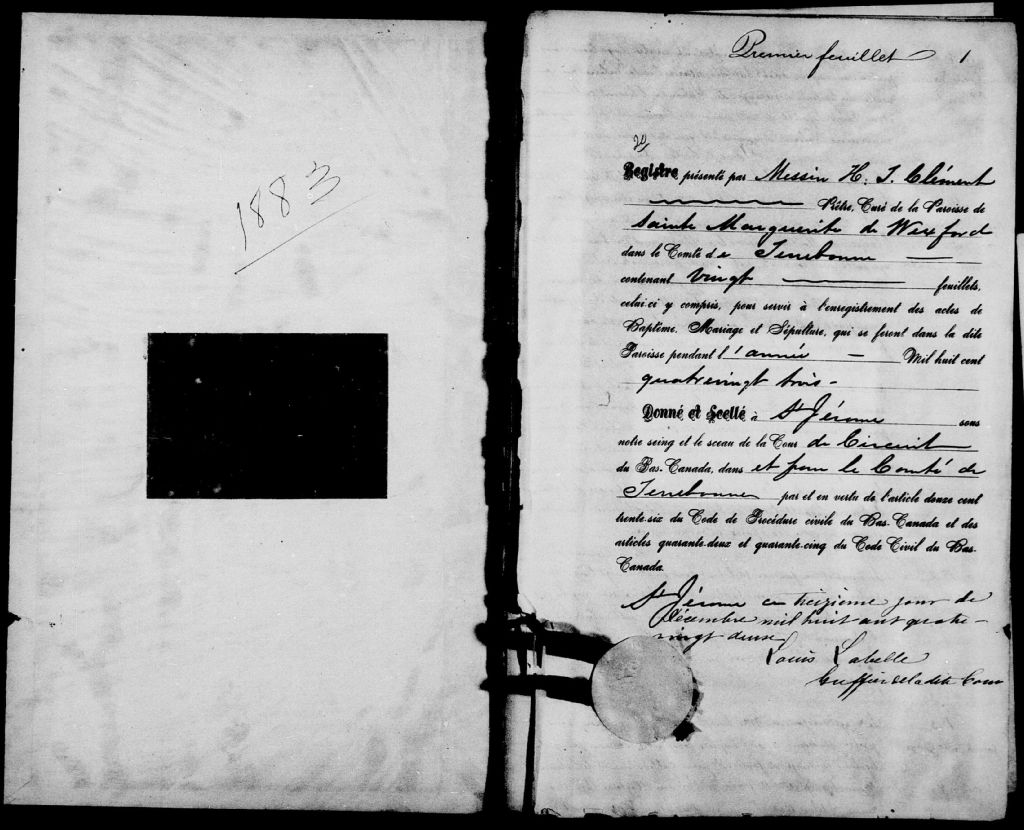 1883
Premier feuillet 1
Registre présenté par Messire H. J. Clément
Prêtre, Curé de la Paroisse de
Sainte Marguerite de Wexford
dans le Comté de Terrebonne
contenant vingt feuillets,
celui-ci y compris, pour servir à l'enregistrement des actes de
Baptême, Mariage et Sépulture, qui se feront dans la dite
Paroisse pendant l'année Mil huit cent
quatrevingt trois -
Donné et Scellé à St Jérome sous
notre seing et le sceau de la Cour de Circuit
du Bas-Canada, dans et pour le Comté de
Terrebonne par et en vertu de l'article douze cent
trente-six du Code de Procédure civile du Bas-Canada et des
articles quarante-deux et quarante-cinq du Code Civil du Bas-
Canada.
St Jérome ce treizieme jour de
décembre mil huit cent quatre-
vingt deux
Louis Labelle
Greffier de la dite Cour